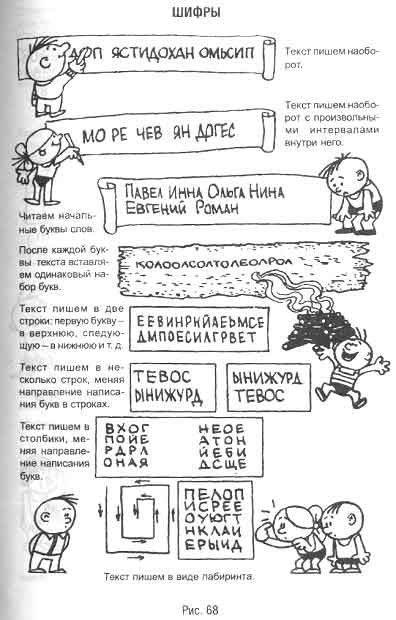 ШИФРЫ
ДОП ЯСТИДОХАН ОМЬСИП
Текст пишем наобо-
рот.
МО РЕ ЧЕВ ЯН ДОГЕС
Текст пишем наобо-
рот с произвольны-
ми интервалами
внутри него.
ПАВЕЛ ИННА ОЛЬГА НИНА
ЕВГЕНИЙ РОМАН
Читаем началь-
ные буквы слов.
После каждой бук-
вы текста вставля-
ем одинаковый на-
бор букв.
КОЛООЛСОЛТОЛЕОЛРОЛ
Текст пишем в две
строки: первую букву –
в верхнюю, следую-
щую – в нижнюю и т. д.
ЕЕВИНРКЙАЕЬМСЕ
ДМПОЕСИЛГРВЕТ
Текст пишем в не-
сколько строк, меняя
направление написа-
ния букв в строках.
ТЕВОС
ЫНИЖУРД
ЫНИЖУРД
ТЕВОС
Текст пишем в
столбики, ме-
няя направле-
ние написания
букв.
ВХОГ НЕОЕ
ПОЙЕ АТОН
РДРЛ ЙЕБИ
ОНАЯ ДСЩЕ
ПЕЛОП
ИСРЕЕ
ОУЮГТ
НКЛАИ
ЕРЫИД
Текст пишем в виде лабиринта.
Рис. 68